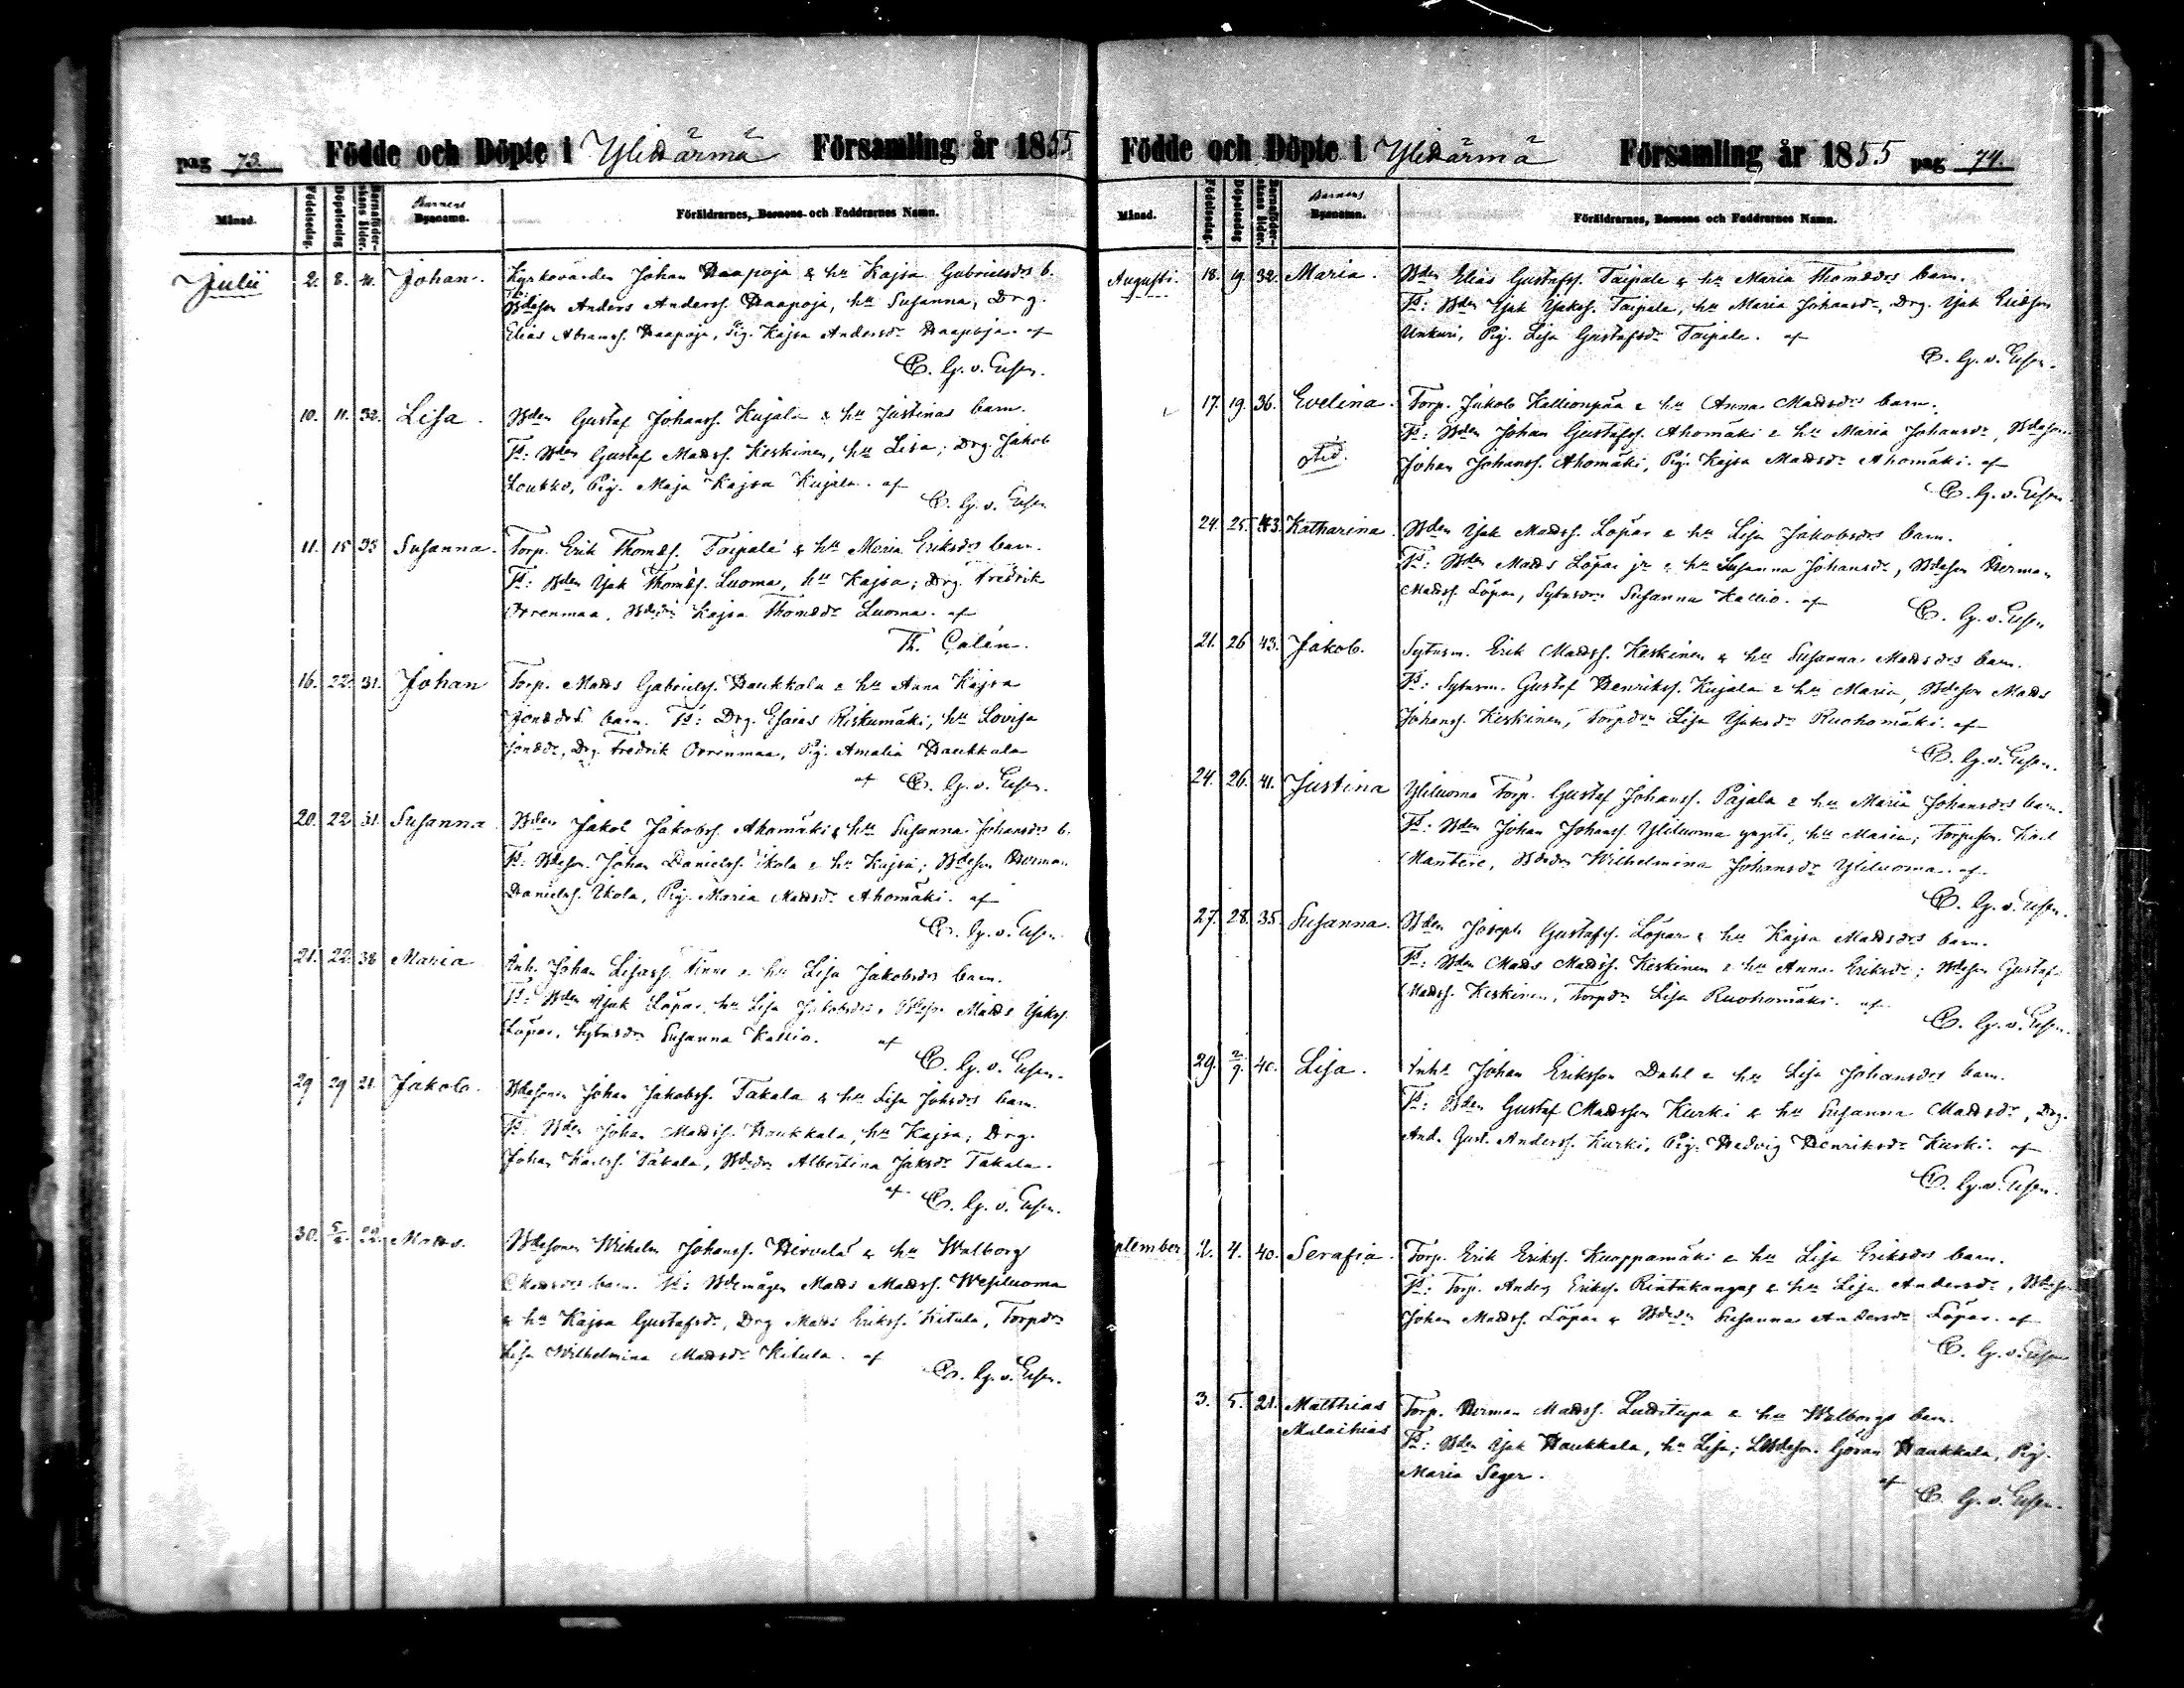 pag 73. Födde och Döpte i Ylihärmä Församling år 1855
Månad. Födelsedag. Döpelsedag Barnaföderskans ålder. Barnens Byanamn. Föräldrarnes, Barnens och Faddrarnes Namn.
Julii 2. 8. Johan. Kyrkovärden Johan Haapoja & hu Kajsa Gabrielsdrs b.
Bdeson Anders Anderss. Haapoja, hu Susanna, Drg.
Elias Abramss. Haapoja, Pig. Kajsa Andersdr Haapoja. af
C. G. v. Essen.
10. 11. 32. Lisa. Bden Gustaf Johanss. Kujala & hu Justinas barn.
Ts: Bden Gustaf Matss. Keskinen, hu Lisa; Drg. Jakob
Loukko, Pig. Maja Kajsa Kujala. af
C. G. v. Essen
11. 15 33 Susanna. Torp. Erik Thomæs. Taipale & hu Maria Eriksdrs barn.
Ts: Bden Isak Thomæs. Luoma, hu Kajsa; Drg. Fredrik
Orrenmaa, Bdedr Kajsa Thomædr Luoma. af
Th. Calén.
16. 22. 31. Johan Torp. Matts Gabrielss. Haukkala & hu Anna Kajsa
Jonædrs barn. Ts: Drg. Esaias Riskumäki, hu Lovisa
Jonædr, Drg. Fredrik Orrenmaa, Pig. Amalia Haukkala
af C. G. v. Essen.
20. 22 31. Susanna Bden Jakob Jakobss. Ahomäki & hu Susanna Johansdrs b.
Ts: Bdeson Johan Danielss. Ikola & hu Kajsa; Bdeson Herman
Danielss. Ikola, Pig. Maria Matsdr Ahomäki. af
C. G. v. Essen
21. 22. 38 Maria Inh. Johan Lisass. Finne & hu Lisa Jakobsdrs barn.
Ts: Bden Isak Löpar, hu Lisa Jakobsdr, Bdeson Matts Isakss.
Löpar, Sytnsdr Susanna Kallio. af
C. G. v. Essen.
29 29 21. Jakob. Bdesonen Johan Jakobss. Takala & hu Lisa Johsdrs barn.
Ts: Bden Johan Matss. Haukkala, hu Kajsa; Drg.
Johan Karlss. Takala, Bdedr Albertina Jaksdr Takala.
af C. G. v. Essen.
30. 22. Matts. Bdesonen Wilhelm Johanss. Hirvelä & hu Walborg
Matsdrs barn. Ts: Bdemågen Matts Matss. Wesiluoma
& hu Kajsa Gustafsdr, Drg Matts Erikss. Kitula, Torpdr
Lisa Wilhelmina Matsdr Kitula. af
C. G. v. Essen.
Födde och Döpte i Ylihärmä Församling år 1855 pag 74.
Månad. Födelsedag. Döpelsedag Barnaföderskans ålder. Barnens Byanamn. Föräldrarnes, Barnens och Faddrarnes Namn.
Augusti. 18. 19. 32. Maria. Bden Elias Gustafss. Taipale & hu Maria Thomædrs barn.
Ts: Bden Isak Isakss. Taipale, hu Maria Johansdr, Drg. Isak Eliedson
Unkuri, Pig. Lisa Gustafsdr Taipale. af
C. G. v. Essen.
17. 19. 36. Evelina. Torp. Jakob Kallionpää & hu Anna Matsdrs barn.
Ts: Bden Johan Gustafss. Ahomäki & hu Maria Johansdr, Bdeson
Johan Johanss. Ahomäki, Pig. Kajsa Matsdr Ahomäki. af
C. G. v. Essen
24. 25. 43. Katharina Bden Isak Matss. Löpar & hu Lisa Jakobsdrs barn.
Ts: Bden Matts Löpar jr & hu Susanna Johansdr, Bdeson Herman
Matss. Löpar, Sytnsdr Susanna Kallio. af
C. G. v. Essen
21. 26 43. Jakob. Sytnsm. Erik Matss. Keskinen & hu Susanna Matsdrs barn.
Ts: Sytnsm. Gustaf Henrikss. Kujala & hu Maria, Bdeson Matts
Johanss. Keskinen, Torpdr Lisa Isaksdr Ruohomäki. af
C. G. v. Essen.
24. 26. 41. Justina Yliluoma Torp. Gustaf Johanss. Pajala & hu Maria Johansdrs barn.
Ts: Bden Johan Johanss. Yliluoma yngste, hu Maria; Torpeson Karl
Mantere, Bdedr Wilhelmina Johansdr Yliluoma. af
C. G. v. Essen.
27. 28. 35. Susanna. Bden Joseph Gustafss. Löpar & hu Kajsa Matsdrs barn.
Ts: Bden Matts Matss. Keskinen & hu Anna Eriksdr; Bdeson Gustaf
Matss. Keskinen, Torpdr Lisa Ruohomäki. af
C. G. v. Essen.
29. 2/9. 40. Lisa. Inhs Johan Eriksson Dahl & hu Lisa Johansdrs barn.
Ts: Bden Gustaf Matsson Kurki & hu Susanna Matsdr, Drg.
And. Gust. Anderss. Kurki, Pig. Hedvig Henriksdr Kurki. af
C. G. v. Essen.
ptember 2. 4. 40. Serafia. Torp. Erik Erikss. Kuoppamäki & hu Lisa Eriksdrs barn.
Ts: Torp. Anders Erikss. Rintakangas & hu Lisa Andersdr, Bdeson
Johan Matss. Löpar & Bdedr Susanna Andersdr Löpar. af
C. G. v. Essen
3. 5. 21. Matthias Torp. Herman Matss. Luhtitupa & hu Walborgs barn.
Malachias Ts: Bden Isak Haukkala, hu Lisa; Bdeson Göran Haukkala, Pig.
Maria Seger. af
C. G. v. Essen.